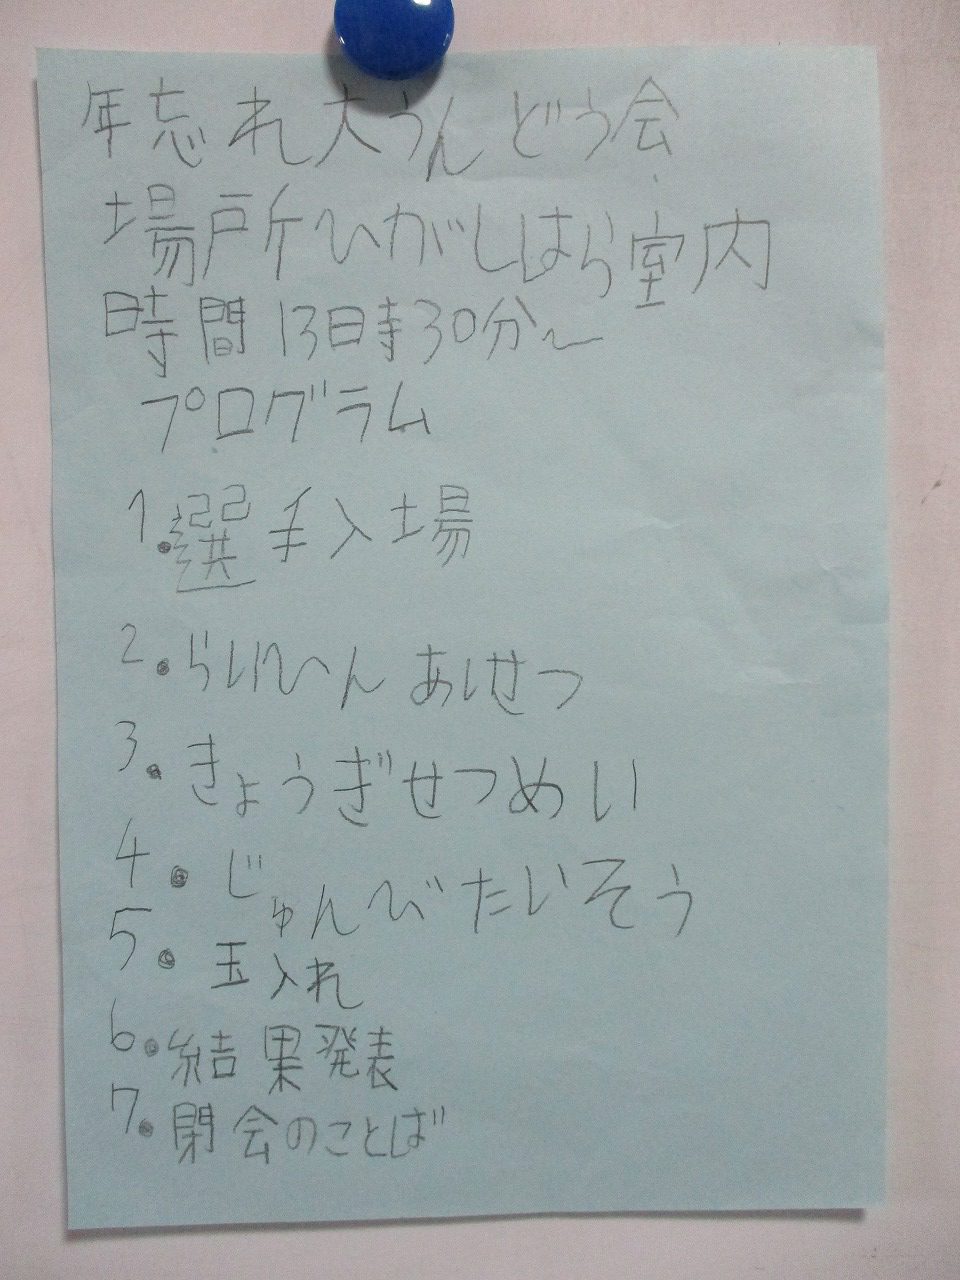 年忘れ大うんどう会
場所ひがしはら室内
時間13時30分~
プログラム
1.選手入場
2.らいひんあいせつ
3.きょうぎせつめい
4.じゅんびたいそう
5.玉入れ
6.結果発表
7.閉会のことば